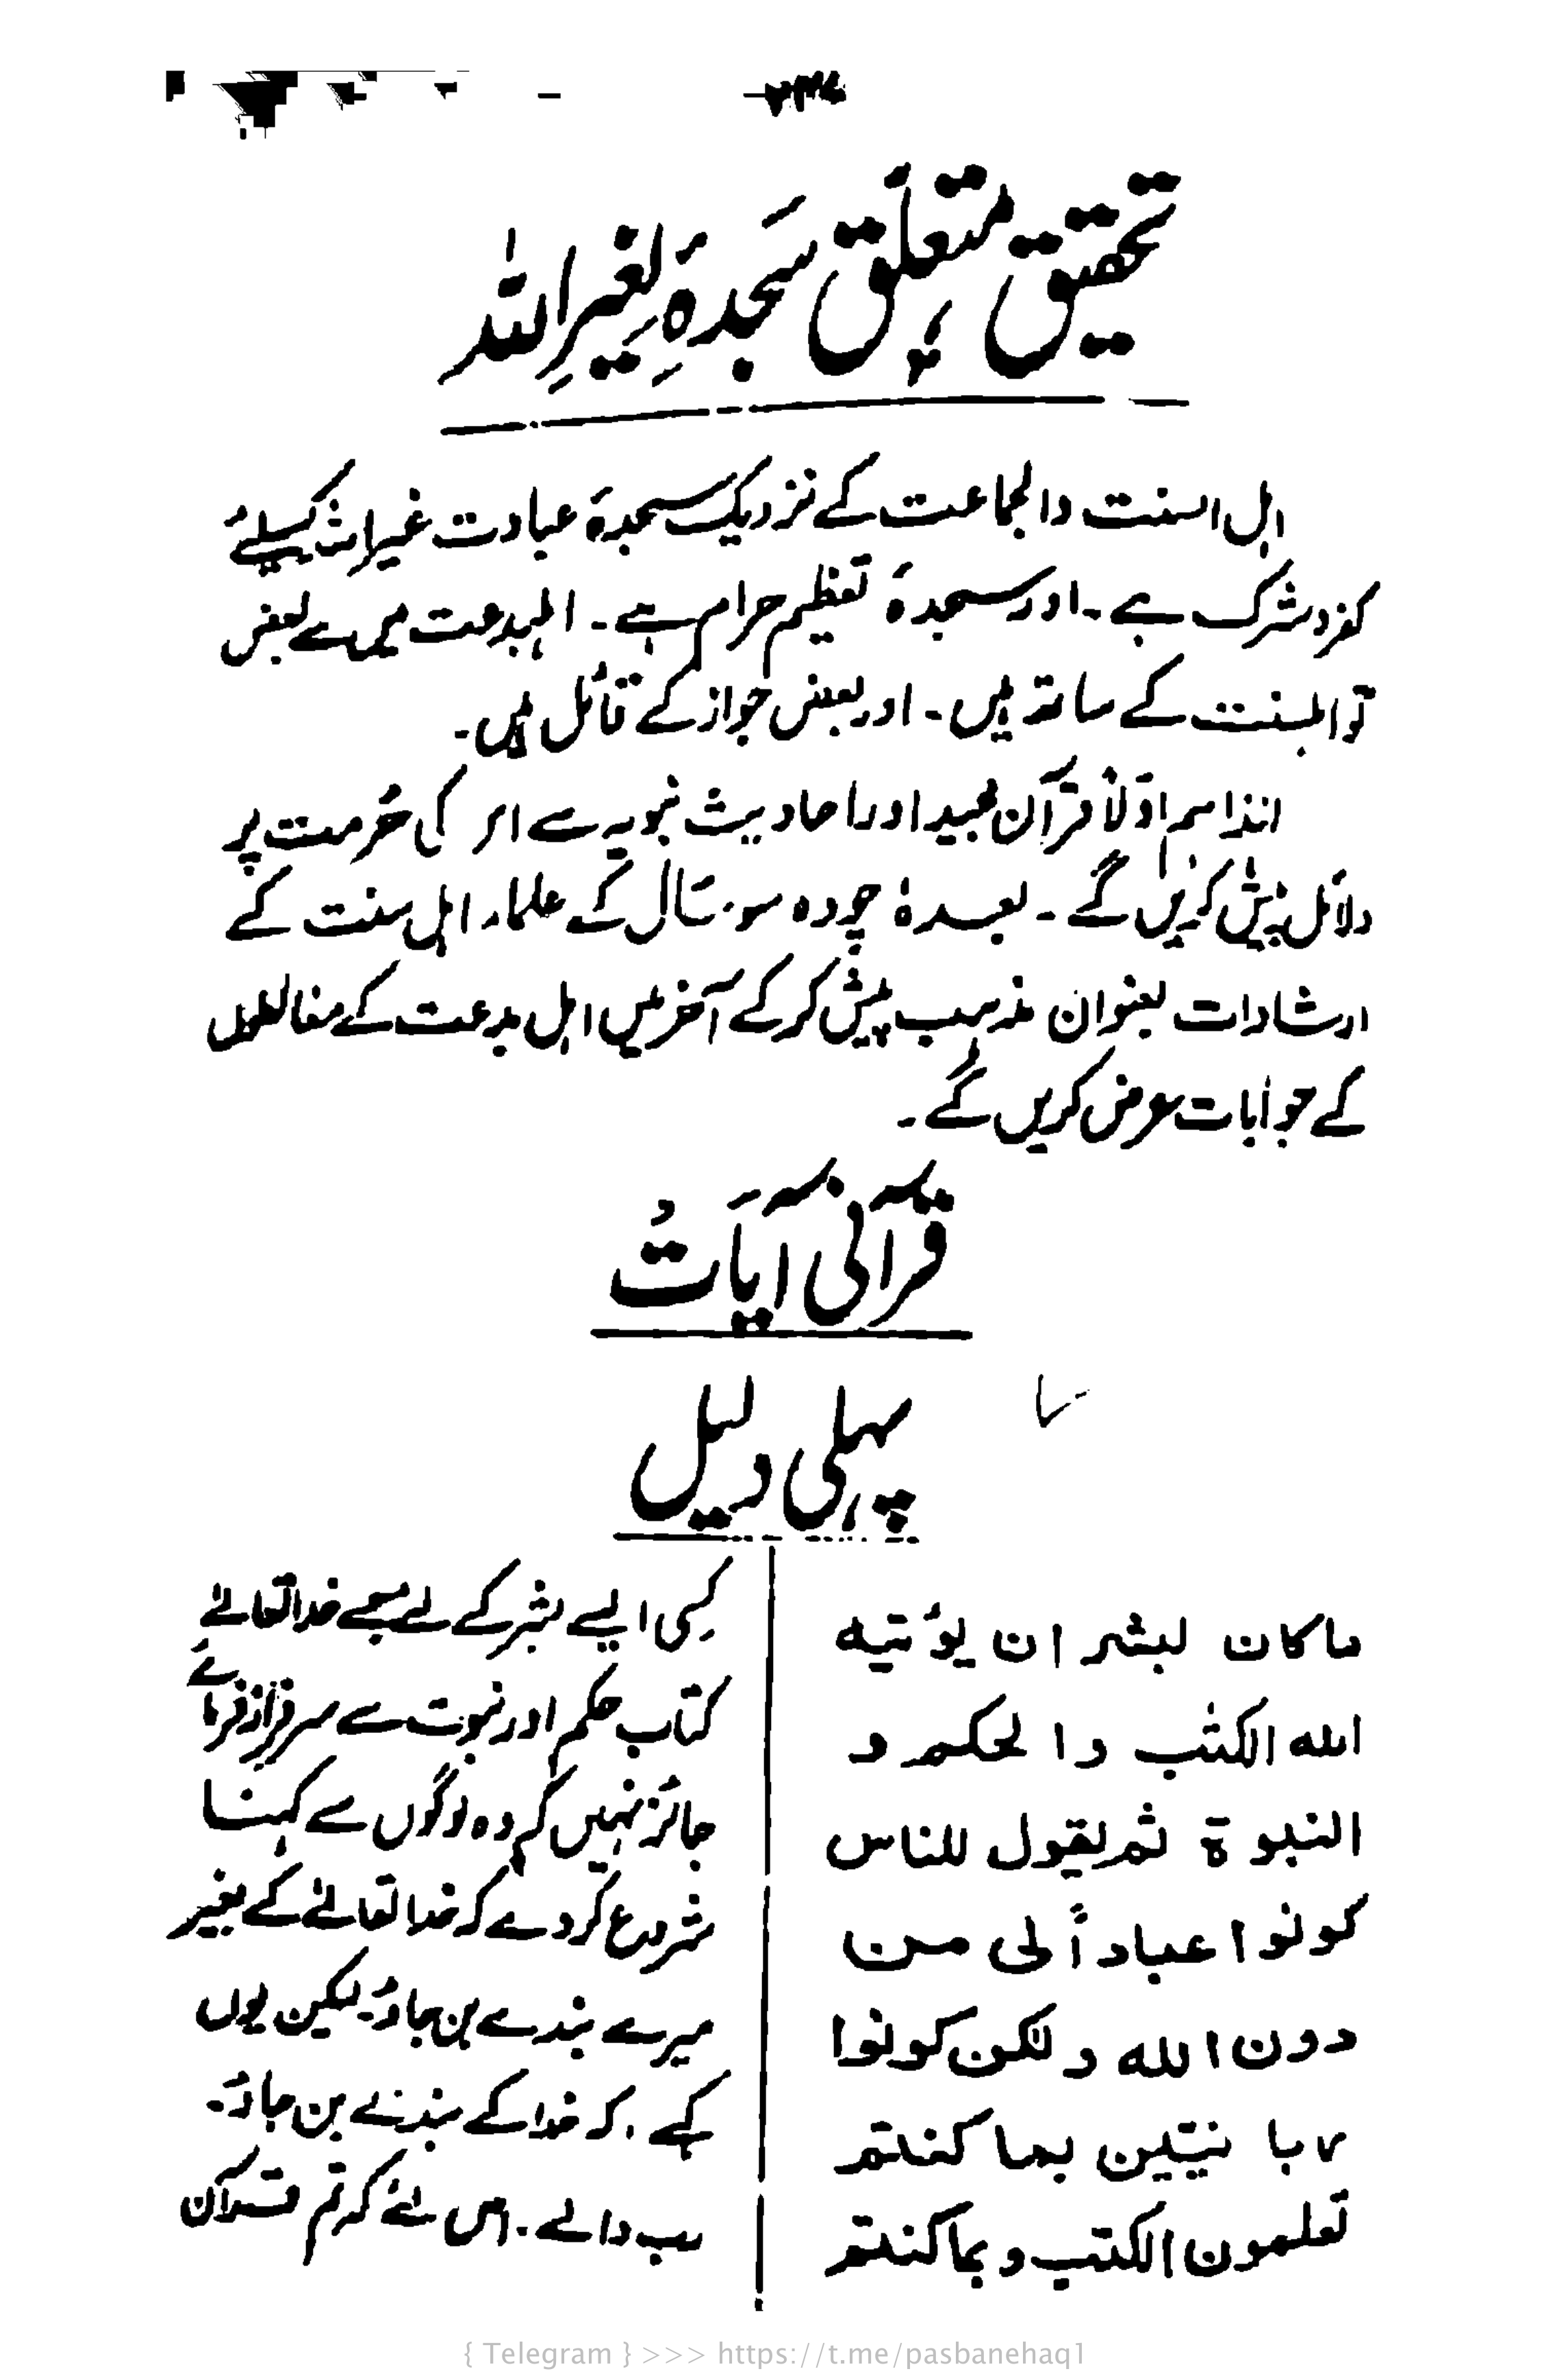 تحقیق متعلق سجدۂ لغیر اللہ
اہل السنت والجماعت کے نزدیک سجدۂ عبادت غیراللہ کیلئے
کفر و شرک ہے ۔ اور سجدۂ تعظیم حرام ہے ۔ اہلبدعت میں سے بعض
تو اہلسنت کے ساتھ ہیں ۔ اور بعض جواز کے قائل ہیں ۔
لہٰذا ہم اولاً قرآن مجید اور احادیث نبویہ سے اس کی حرمت پر
دلائل پیش کریں گے ۔ بعدہٗ چودہ سو سال کے علماء اہل سنت کے
ارشادات بعنوان مذہب پیش کر کے آخر میں اہل بدعت کے مغالطوں
کے جوابات عرض کریں گے ۔
قرآنی آیات
پہلی دلیل
ماکان لبشر ان یؤتیہ
اللہ الکتٰب والحکم و
النبوۃ ثم یقول للناس
کونوا عباداً لی من
دون اللہ ولٰکن کونوا
ربانیّین بما کنتم
تعلمون الکتٰب وبما کنتم
کسی ایسے بشر کے لئے جسے خدا تعالےٰ
کتاب حکم اور نبوت سے سرفراز فرمائے
جائز نہیں کہ وہ لوگوں سے کہنا
شروع کر دے کہ خدا تعالےٰ کے بغیر
میرے بندے بن جاؤ۔ لیکن یوں
کہے ۔ کہ خدا کے بندے بن جاؤ۔
رب والے ۔ اس لئے کہ تم قرآن
{ Telegram } >>> https://t.me/pasbanehaq1